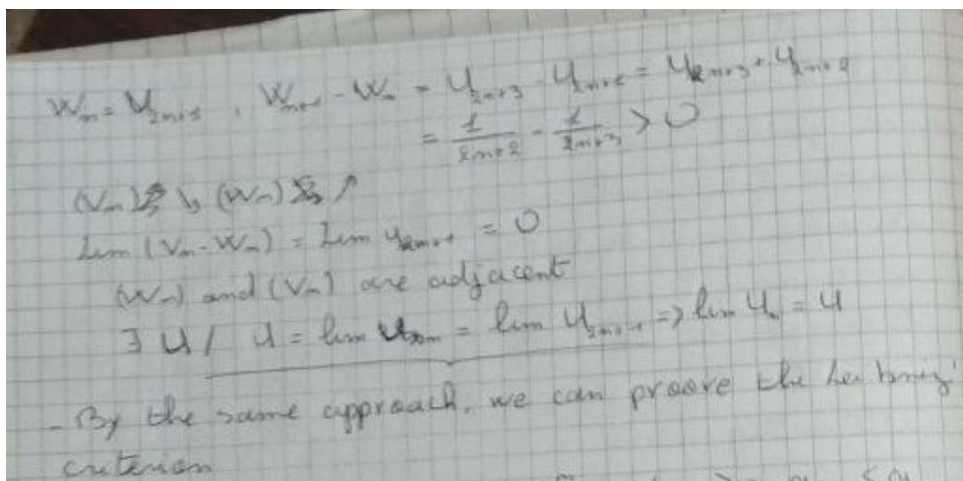 Wn = U2n+1 , Wn+1 - Wn = U2n+3 - U2n+1 = U2n+3 + U2n+2
= 1/(2n+2) - 1/(2n+3) > 0
(Vn) ↘ (Wn) ↗
Lim (Vn - Wn) = Lim U2n+1 = 0
(Wn) and (Vn) are adjacent
∃ U / U = lim U2n = lim U2n+1 => lim Un = U
- By the same approach, we can proove the
criterion